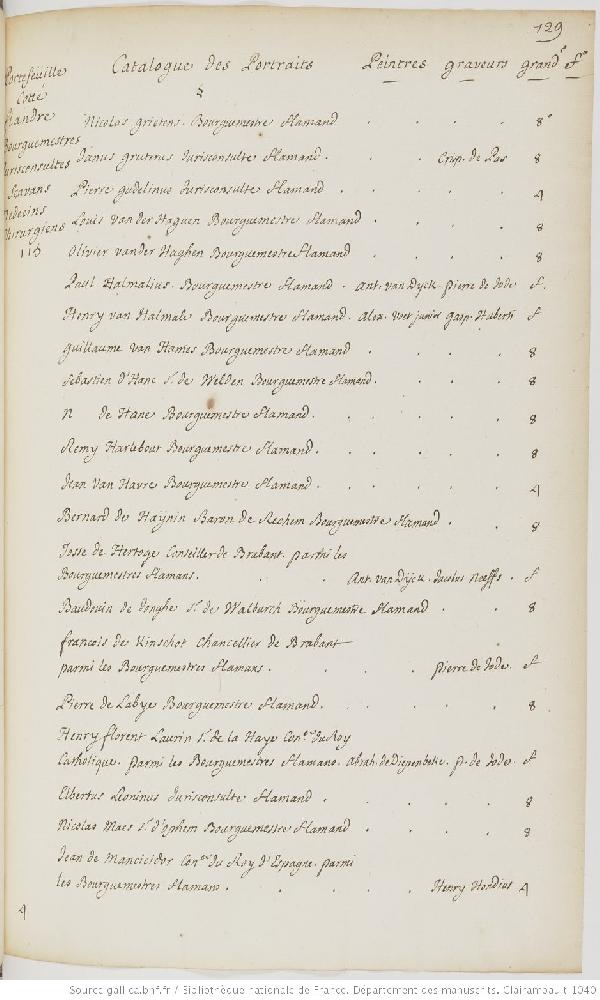 129
Catalogue des Portraits Peintres graveurs grandr fr
Portefeuille
Cotte
flandre
Bourguemestres
Jurisconsultes
Scavans
Medecins
Chirurgiens
115
Nicolas grietens. Bourguemestre flamand . . . 8°
Janus gruterus Jurisconsulte flamand . . Crisp. de Pas 8
Pierre gudelinus Jurisconsulte flamand . . . . 4
Louis van der Haguen Bourguemestre flamand . . . 8
Olivier vander Haghen Bourguemestre flamand . . . 8
Paul Halmalius. Bourguemestre flamand . Ant. van Dyck . pierre de Jode f.
Henry van Halmale Bourguemestre flamand. Alex. Voet junior gasp. Huberti f
guillaume van Hames Bourguemestre flamand . . . 8
Sebastien d'Hane Sr. de Welden Bourguemestre flamand . . . 8
N de Hane Bourguemestre flamand . . . . 8
Remy Harlebout Bourguemestre flamand . . . . 8
Jean Van Havre Bourguemestre flamand . . . . 4
Bernard de Haÿnin Baron de Rechem Bourguemestre flamand . . 8
Josse de Hertoge Conseiller de Brabant. parmi les
Bourguemestres flamans. . . Ant. van Dijck . Jacobus Neeffs . f
Baudouin de Jonghe Sr. de Walburch Bourguemestre flamand . . 8
francois de Kinschot Chancellier de Brabant
parmi les Bourguemestres flamans. . . . pierre de Jode. f
Pierre de Labye Bourguemestre flamand . . . . 8
Henry florent Laurin Sr. de la Haye Coner du Roy
Catholique. parmi les Bourguemestres flamans. Abrah. de Diepenbeke. p. de Jode. f
Elbertus Leoninus Jurisconsulte flamand . . . . 8
Nicolas Maes Sr d'ophem Bourguemestre flamand . . . 8
Jean de Mancicidor Coner du Roy d'Espagne. parmi
les Bourguemestres flamans . . . . Henry Hondius 4
4
Source gallica.bnf.fr / Bibliothèque nationale de France. Département des manuscrits. Clairambault 1040